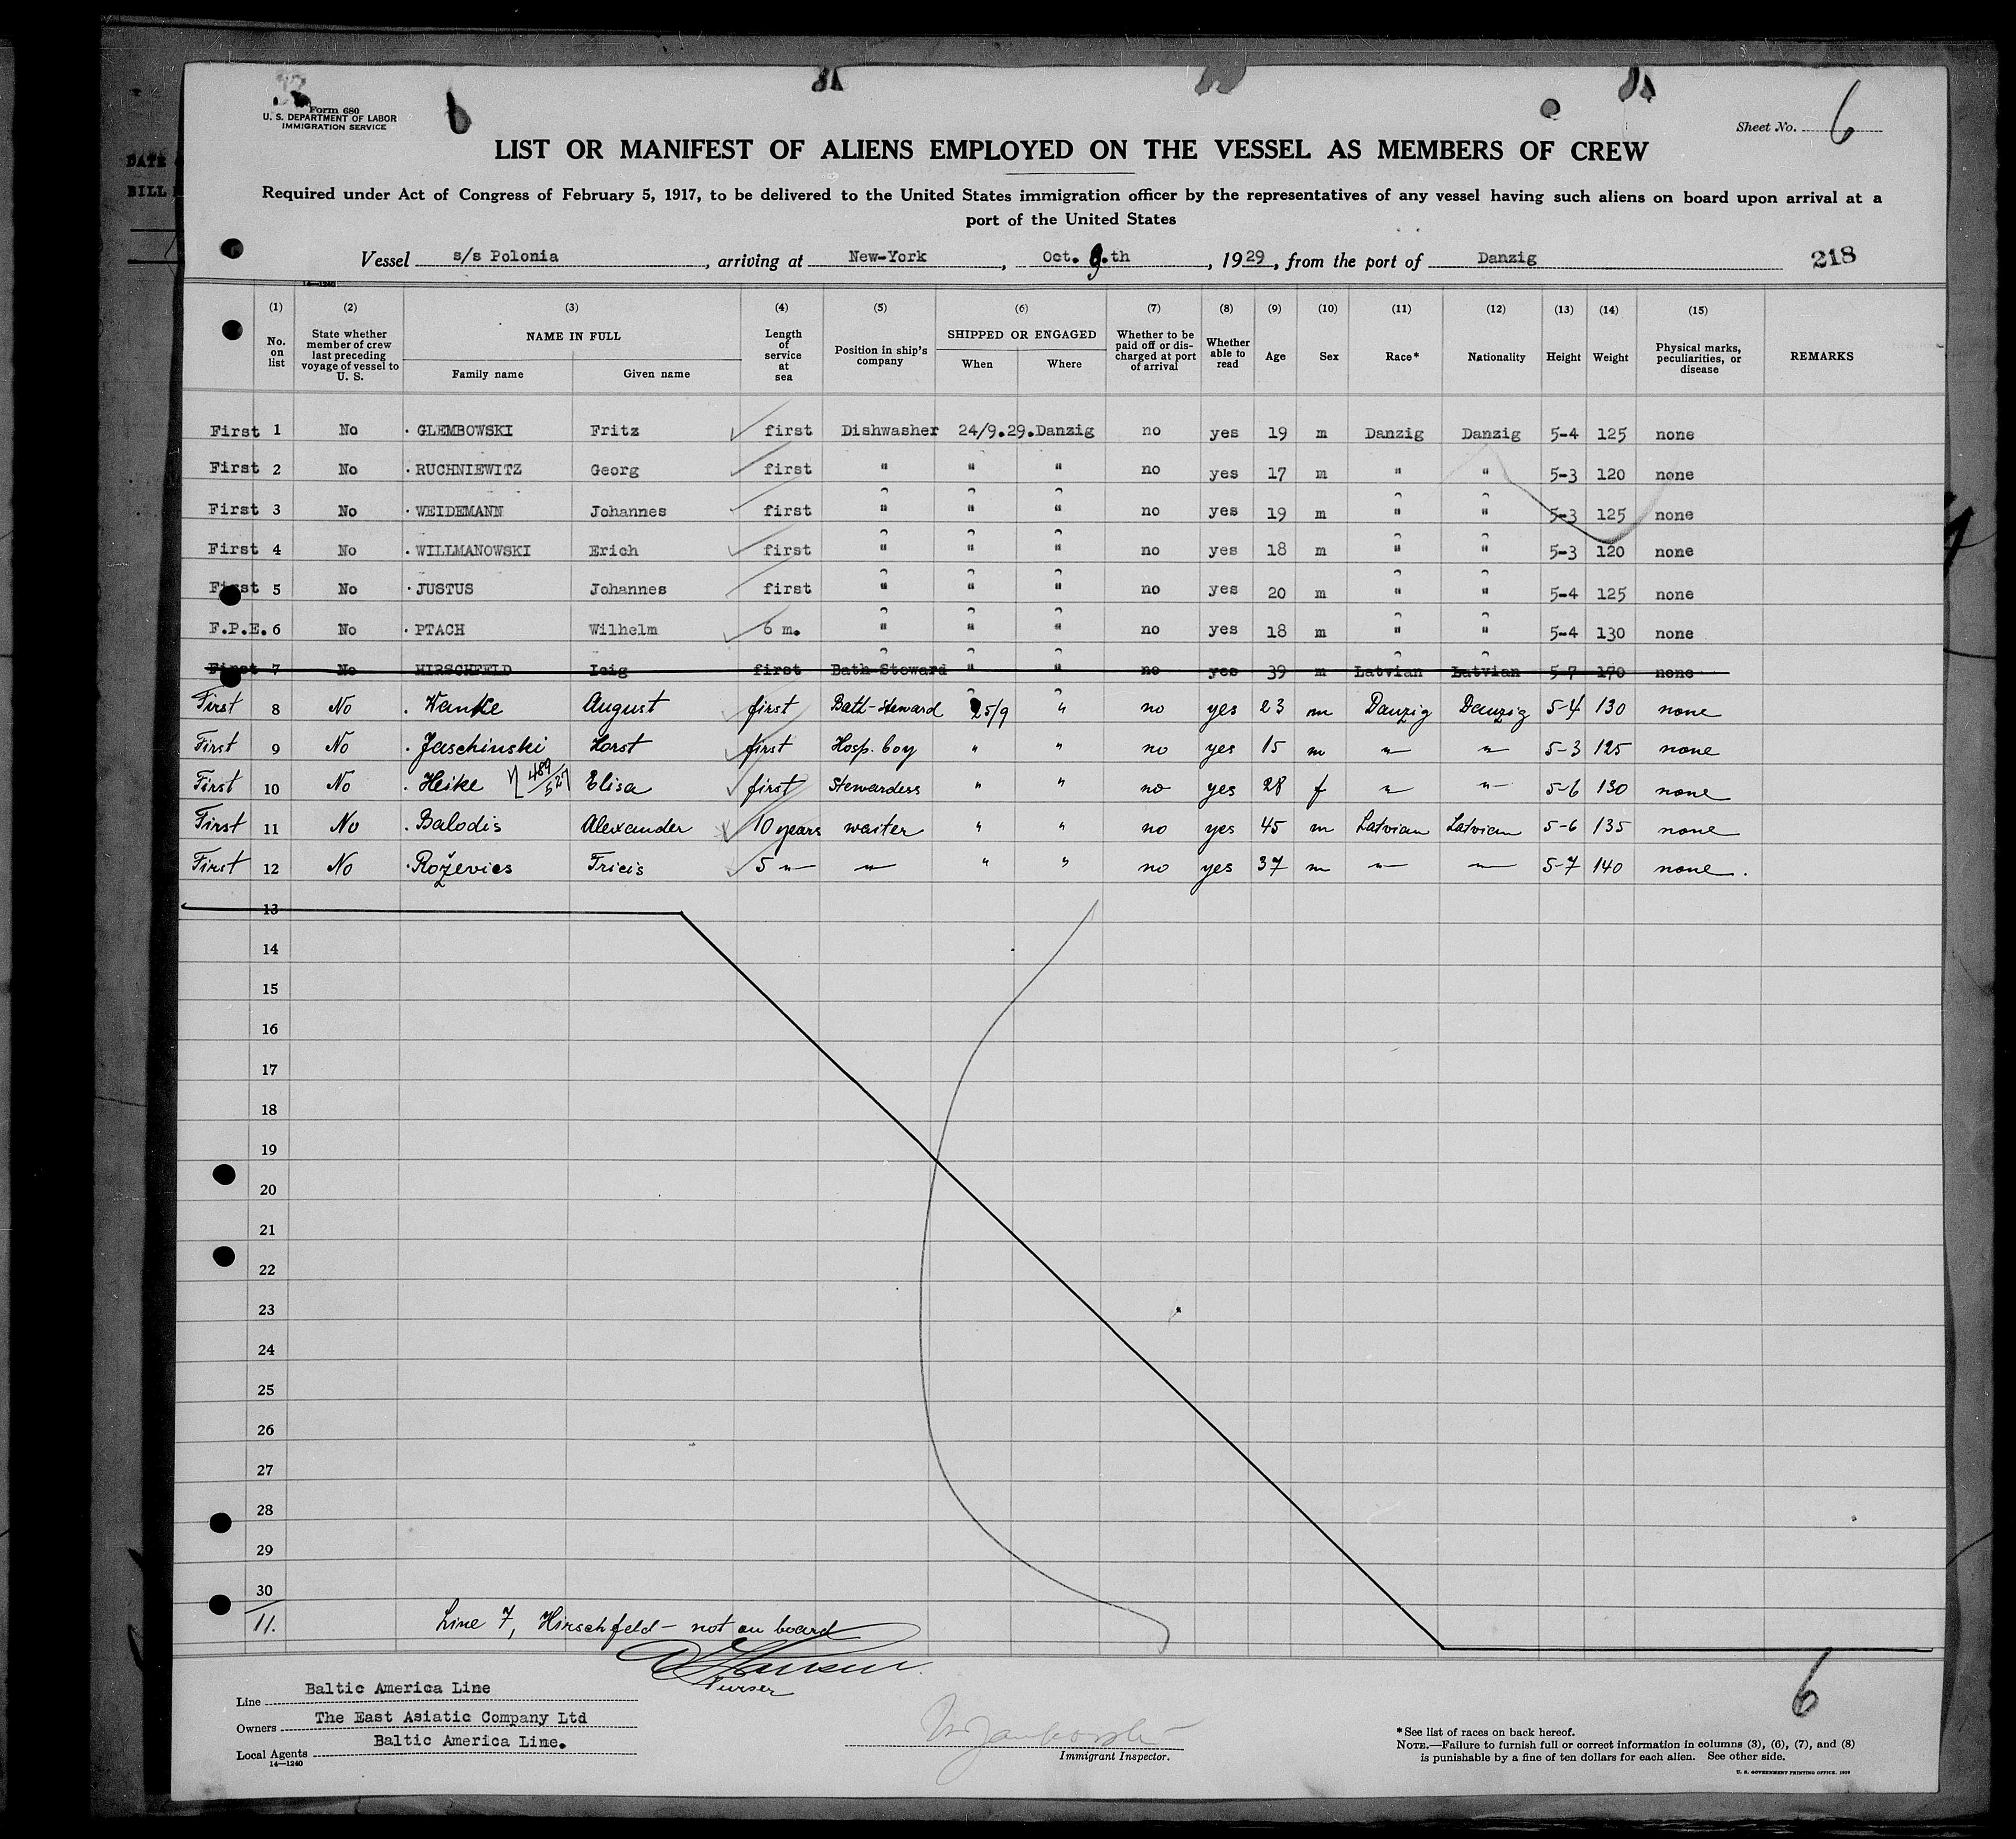 Form 680
U. S. DEPARTMENT OF LABOR
IMMIGRATION SERVICE
Sheet No. 6
LIST OR MANIFEST OF ALIENS EMPLOYED ON THE VESSEL AS MEMBERS OF CREW
Required under Act of Congress of February 5, 1917, to be delivered to the United States immigration officer by the representatives of any vessel having such aliens on board upon arrival at a
port of the United States
Vessel s/s Polonia, arriving at New-York, Oct. 9.th, 1929, from the port of Danzig 218
14—1240
(1) (2) (3) (4) (5) (6) (7) (8) (9) (10) (11) (12) (13) (14) (15)
No. on list | State whether member of crew last preceding voyage of vessel to U. S. | NAME IN FULL Family name Given name | Length of service at sea | Position in ship's company | SHIPPED OR ENGAGED When Where | Whether to be paid off or discharged at port of arrival | Whether able to read | Age | Sex | Race* | Nationality | Height | Weight | Physical marks, peculiarities, or disease | REMARKS
First 1 No GLEMBOWSKI Fritz first Dishwasher 24/9.29.Danzig no yes 19 m Danzig Danzig 5-4 125 none
First 2 No RUCHNIEWITZ Georg first " " " no yes 17 m " " 5-3 120 none
First 3 No WEIDEMANN Johannes first " " " no yes 19 m " " 5-3 125 none
First 4 No WILLMANOWSKI Erich first " " " no yes 18 m " " 5-3 120 none
First 5 No JUSTUS Johannes first " " " no yes 20 m " " 5-4 125 none
F.P.E. 6 No PTACH Wilhelm 6 m. " " " no yes 18 m " " 5-4 130 none
First 7 No HIRSCHFELD Icig first Bath-Steward " " no yes 39 m Latvian Latvian 5-7 170 none
First 8 No Wanke August first Bath-Steward 25/9 " no yes 23 m Danzig Danzig 5-4 130 none
First 9 No Jaschinski Horst first Hosp. boy " " no yes 15 m " " 5-3 125 none
First 10 No Heike 489/527 Elisa first Stewardess " " no yes 28 f " " 5-6 130 none
First 11 No Balodis Alexander 10 years waiter " " no yes 45 m Latvian Latvian 5-6 135 none
First 12 No Roževics Fricis 5 " " " " no yes 37 m " " 5-7 140 none.
13
14
15
16
17
18
19
20
21
22
23
24
25
26
27
28
29
30
11.
Line 7, Hirschfeld - not on board
Hansen
Purser
6
Line Baltic America Line
Owners The East Asiatic Company Ltd
Local Agents Baltic America Line.
14—1240
Immigrant Inspector.
*See list of races on back hereof.
NOTE.—Failure to furnish full or correct information in columns (3), (6), (7), and (8)
is punishable by a fine of ten dollars for each alien. See other side.
DATE
BILL